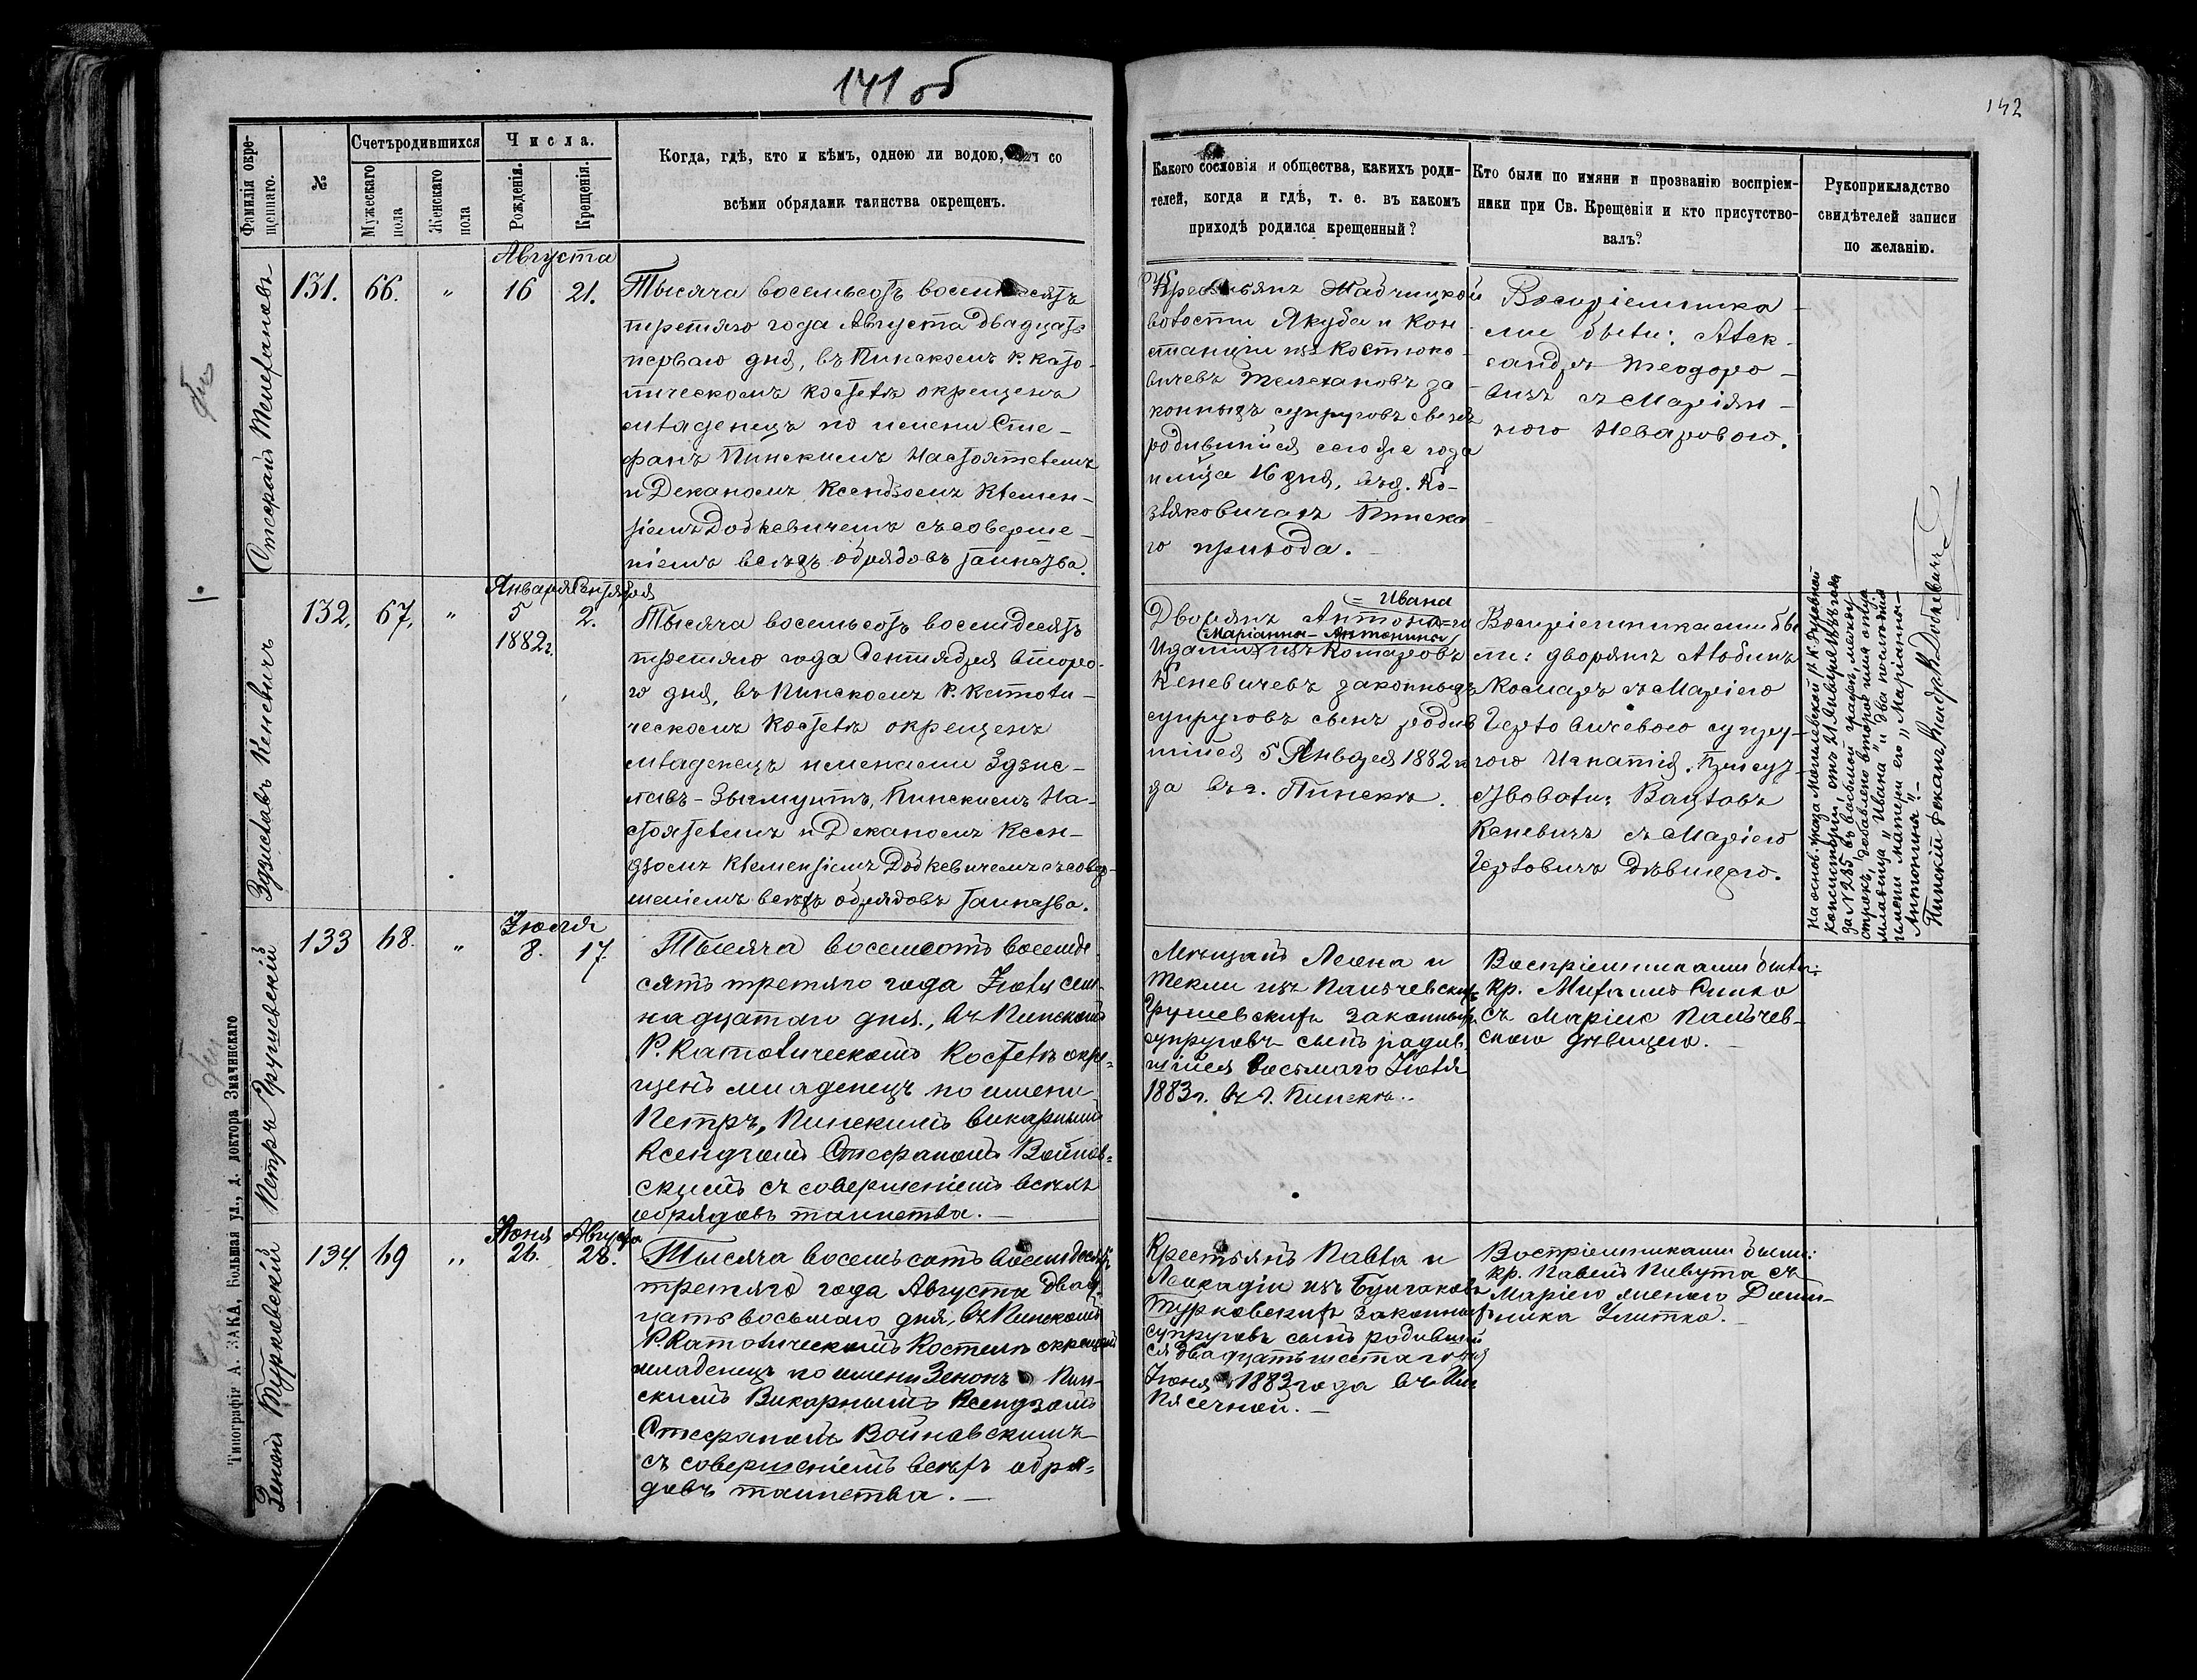 141 об
142
Фамилія окре-
щеннаго.
№
Счетъ родившихся
Мужескаго
пола
Женскаго
пола
Числа.
Рожденія.
Крещенія.
Когда, гдѣ, кто и кѣмъ, одною ли водою, со
всѣми обрядами таинства окрещенъ.
Какого сословія и общества, какихъ роди-
телей, когда и гдѣ, т. е. въ какомъ
приходѣ родился крещенный?
Кто были по имяни и прозванію воспріем-
ники при Св. Крещеніи и кто присутство-
валъ?
Рукоприкладство
свидѣтелей записи
по желанію.
Стефанъ Телехановъ
131.
66.
"
Августа
16
21.
Тысяча восемьсотъ восемдесятъ
третяго года Августа двадцатъ
перваго дня, въ Пинскомъ Р. Като-
лическомъ костелѣ окрещенъ
младенецъ по имени Сте-
фанъ Пинскимъ Настоятелемъ
и Деканомъ Ксендзомъ Клемен-
сіемъ Додкевичемъ съ соверше-
ніемъ всѣхъ обрядовъ таинства.
Крестьянъ
волости Якуба и Кон-
станціи изъ Костюко-
вичевъ Телехановъ за-
конныхъ супруговъ сынъ
родившійся сего же года
и мѣсяца 16 дня, въ д. Ко-
зляковичахъ Пинска-
го прихода.
Воспріемника-
ми были: Алек-
сандръ Теодоро-
вичъ съ Маріян-
ною Неваровою.
Здзиславъ Кеневичъ
132.
67.
"
Января
5
1882 г.
Сентября
2.
Тысяча восемьсотъ восемдесятъ
третяго года Сентября второ-
го дня, въ Пинскомъ Р. Католи-
ческомъ костелѣ окрещенъ
младенецъ именами Здзис-
лавъ-Зыгмунтъ, Пинскимъ На-
стоятелемъ и Деканомъ Ксен-
дзомъ Клеменсіемъ Додкевичемъ съ совер-
шеніемъ всѣхъ обрядовъ таинства.
= Ивана
Дворянъ Антона= и
(Маріанны-Антонины)
Идаліи изъ Комаровъ
Кеневичевъ законныхъ
супруговъ сынъ родив
шійся 5 Января 1882 го
да въ г. Пинскѣ.
Воспріемниками бы
ли: дворянъ Альбинъ
Комаръ съ Маріею
Гертовичевою супру-
гою Игнатія. Присут-
ствовали: Вацлавъ
Кеневичъ съ Маріею
Гертовичъ дѣвицею.
На основ. указа Могилевской Р. К. Духовной
Консисторіи, отъ 21 Января
за № 285 въ восьмой графѣ, между
строкъ, добавлено второе имя отца
младенца „Ивана" и два
имени матери его „Маріанна-
Антонина".-
Пинскій Деканъ Ксендзъ К. Додкевичъ
Петръ Грушевскій
133
68.
"
Іюля
8.
17.
Тысяча восемсотъ восемде-
сятъ третяго года Іюля сем-
надцатаго дня, въ Пинскомъ
Р. Католическомъ Костелѣ окре-
щенъ младенецъ по имени
Петръ, Пинскимъ Викарнымъ
Ксендзомъ Стефаномъ Войнов-
скимъ съ совершеніемъ всѣхъ
обрядовъ таинства.-
Мѣщанъ Леона и
Текли изъ Пальчевскихъ
Грушевскихъ законныхъ
супруговъ сынъ родив-
шійся восьмаго Іюля
1883 г. въ г. Пинскѣ.
Воспріемниками были:
Кр. Михаилъ Синко
съ Маріею Пальчев-
скою дѣвицею.-
Зенонъ Турковскій
134.
69
"
Іюня
26.
Августа
28.
Тысяча восемьсотъ восемдесятъ
третяго года Августа двад-
цатъ восьмаго дня, въ Пинскомъ
Р. Католическомъ Костелѣ окрещенъ
младенецъ по имени Зенонъ Пин-
скимъ Викарнымъ Ксендзомъ
Стефаномъ Войновскимъ
съ совершеніемъ всѣхъ обря-
довъ таинства.-
Крестьянъ Павла и
Леокадіи изъ Булгаковъ
Турковскихъ законныхъ
супруговъ сынъ родивший
ся двадцатъ шестаго дня
Іюня 1883 года въ Им
Пясечной.-
Воспріемниками были:
кр. Павелъ Пивута съ
Маріею женою Доми-
ника Улитко.-
Типографія А. ЗАКА, Большая ул., д. доктора Значинскаго